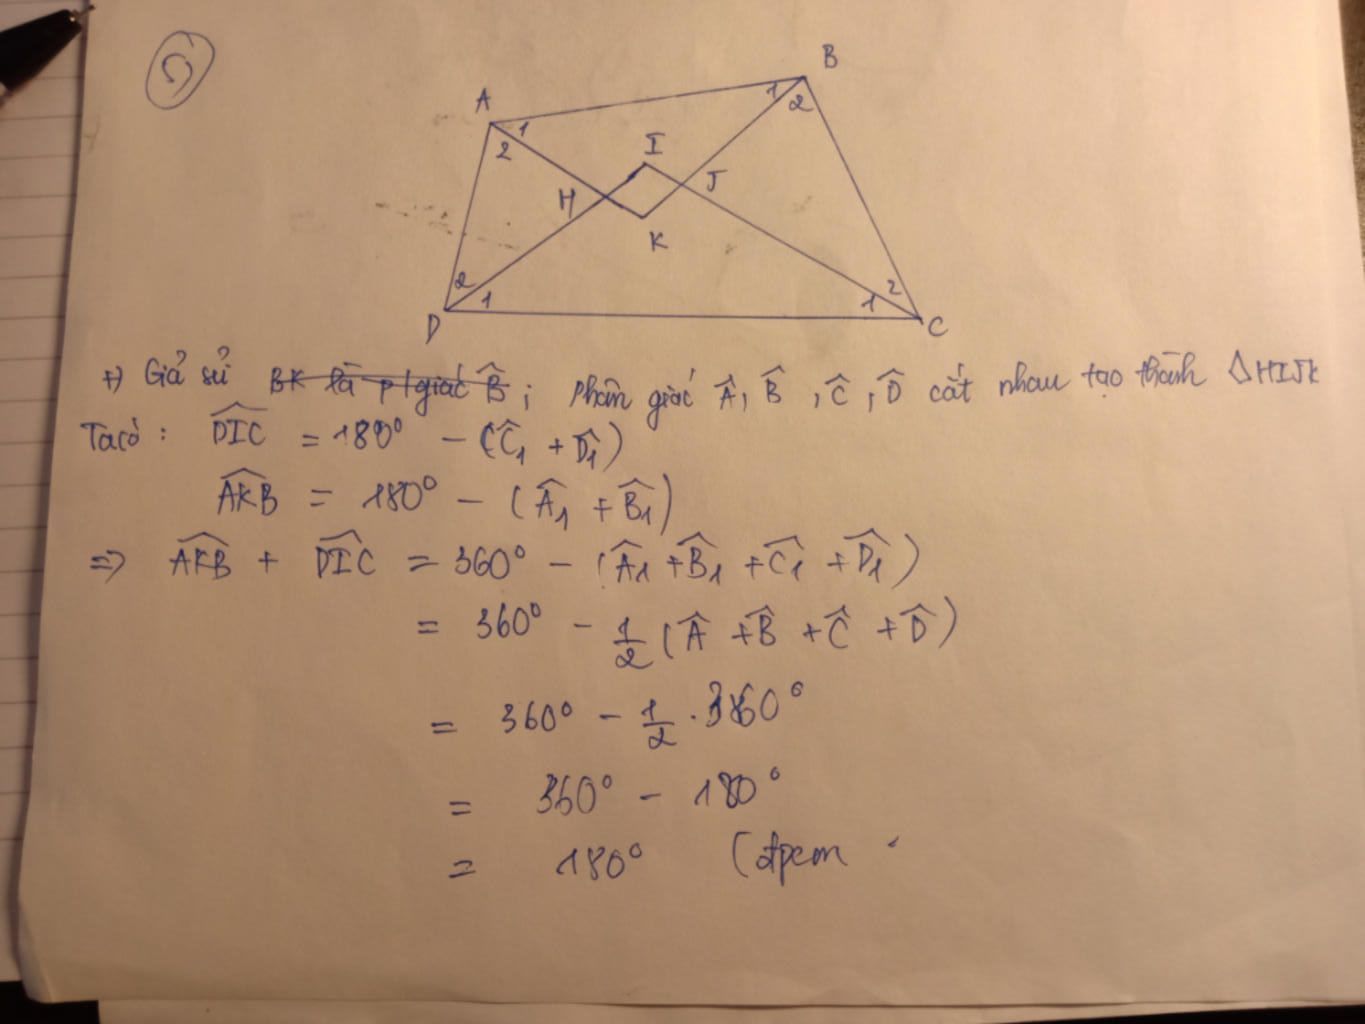 5)
B
A
1
2
1
2
I
H
J
K
2
1
1
2
D
C
+) Giả sử BK là p/giác B̂; Phân giác Â, B̂, Ĉ, D̂ cắt nhau tạo thành ΔHIJK
Ta có: DIC = 180° - (Ĉ₁ + D̂₁)
AKB = 180° - (Â₁ + B̂₁)
=> AKB + DIC = 360° - (Â₁ + B̂₁ + Ĉ₁ + D̂₁)
= 360° - 1/2 (Â + B̂ + Ĉ + D̂)
= 360° - 1/2 . 360°
= 360° - 180°
= 180° (đpcm